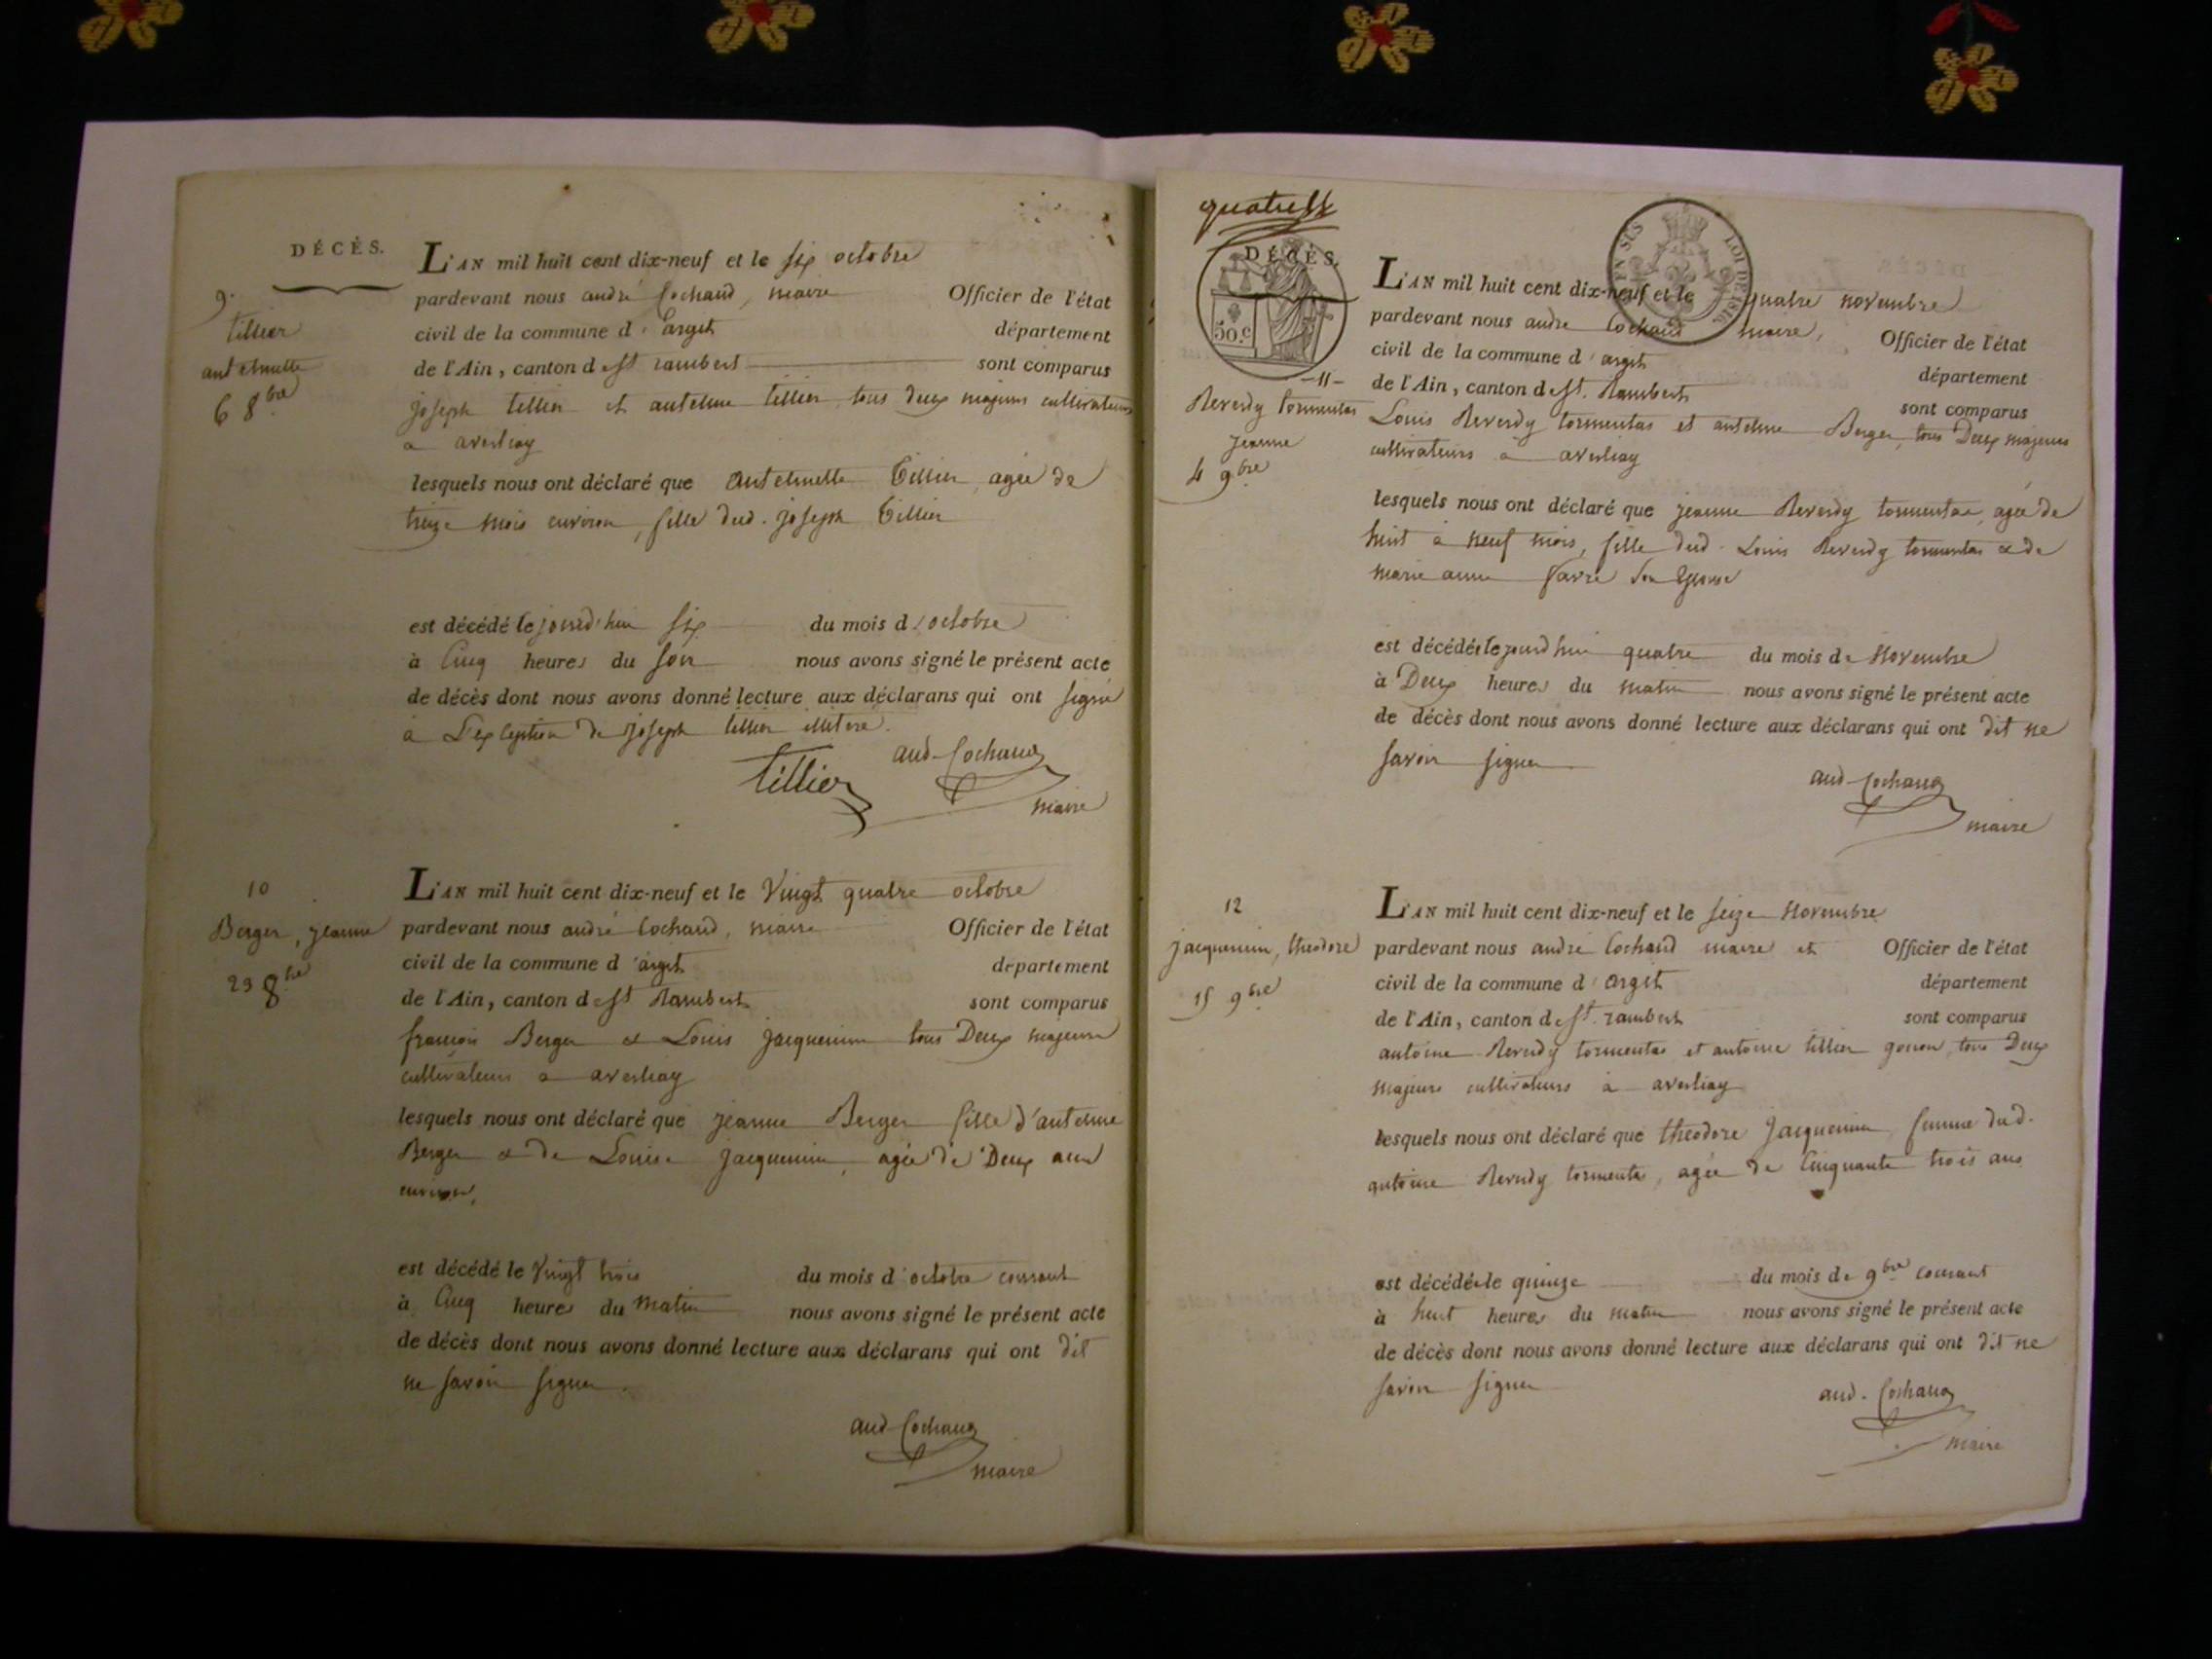 DÉCÈS.
9.
tillier
antelmette
6 8bre
L'AN mil huit cent dix-neuf et le six octobre
pardevant nous andré Cochaud, maire Officier de l'état
civil de la commune d'arget département
de l'Ain, canton de st rambert sont comparus
joseph tillier et antelme tillier tous deux majeurs cultivateurs
a averliay
lesquels nous ont déclaré que antelmette Tillier agée de
treize mois environ, fille dud. joseph Tillier
est décédé le jourd'hui six du mois d'octobre
à Cinq heures du soir nous avons signé le présent acte
de décès dont nous avons donné lecture aux déclarans qui ont signé
a L'exception de joseph tillier illiteré.
Tillier
and Cochaud
maire
10
Berger, jeanne
23 8bre
L'AN mil huit cent dix-neuf et le Vingt quatre octobre
pardevant nous andré Cochaud, maire Officier de l'état
civil de la commune d'arget département
de l'Ain, canton de st Rambert sont comparus
françois Berger & Louis jacquemin tous Deux majeurs
cultivateurs a averliay
lesquels nous ont déclaré que jeanne Berger fille d'antelme
Berger & de Louise jacquemin, agée de Deux ans
environ,
est décédé le Vingt trois du mois d'octobre courant
à Cinq heures du matin nous avons signé le présent acte
de décès dont nous avons donné lecture aux déclarans qui ont dit
ne savoir signer.
and Cochaud
maire
DÉCÈS.
50.c
EN SUS
LOI DE 1816
-11-
Reverdy tormentas
jeanne
4 9bre
L'AN mil huit cent dix-neuf et le quatre novembre
pardevant nous andre Cochaud maire, Officier de l'état
civil de la commune d'arget département
de l'Ain, canton de st. Rambert sont comparus
Louis Reverdy tormentas et antelme Berger, tous Deux majeurs
cultivateurs a averliay
lesquels nous ont déclaré que jeanne Reverdy tormentas, agée de
huit à neuf mois, fille dud. Louis Reverdy tormentas & de
marie anne favre son Epouse
est décédée le jourd'hui quatre du mois de Novembre
à Deux heures du matin nous avons signé le présent acte
de décès dont nous avons donné lecture aux déclarans qui ont dit ne
savoir signer
and Cochaud
maire
12
jacquemin, theodore
15 9bre
L'AN mil huit cent dix-neuf et le seize Novembre
pardevant nous andré Cochaud maire et Officier de l'état
civil de la commune d'arget département
de l'Ain, canton de st. rambert sont comparus
antoine Reverdy tormentas et antoine tillier gonon, tous Deux
majeurs cultivateurs à averliay
lesquels nous ont déclaré que theodore jacquemin, femme dud.
antoine Reverdy tormentas, agée de Cinquante trois ans
est décédée le quinze du mois de 9bre courant
à huit heures du matin nous avons signé le présent acte
de décès dont nous avons donné lecture aux déclarans qui ont dit ne
savoir signer
and. Cochaud
maire